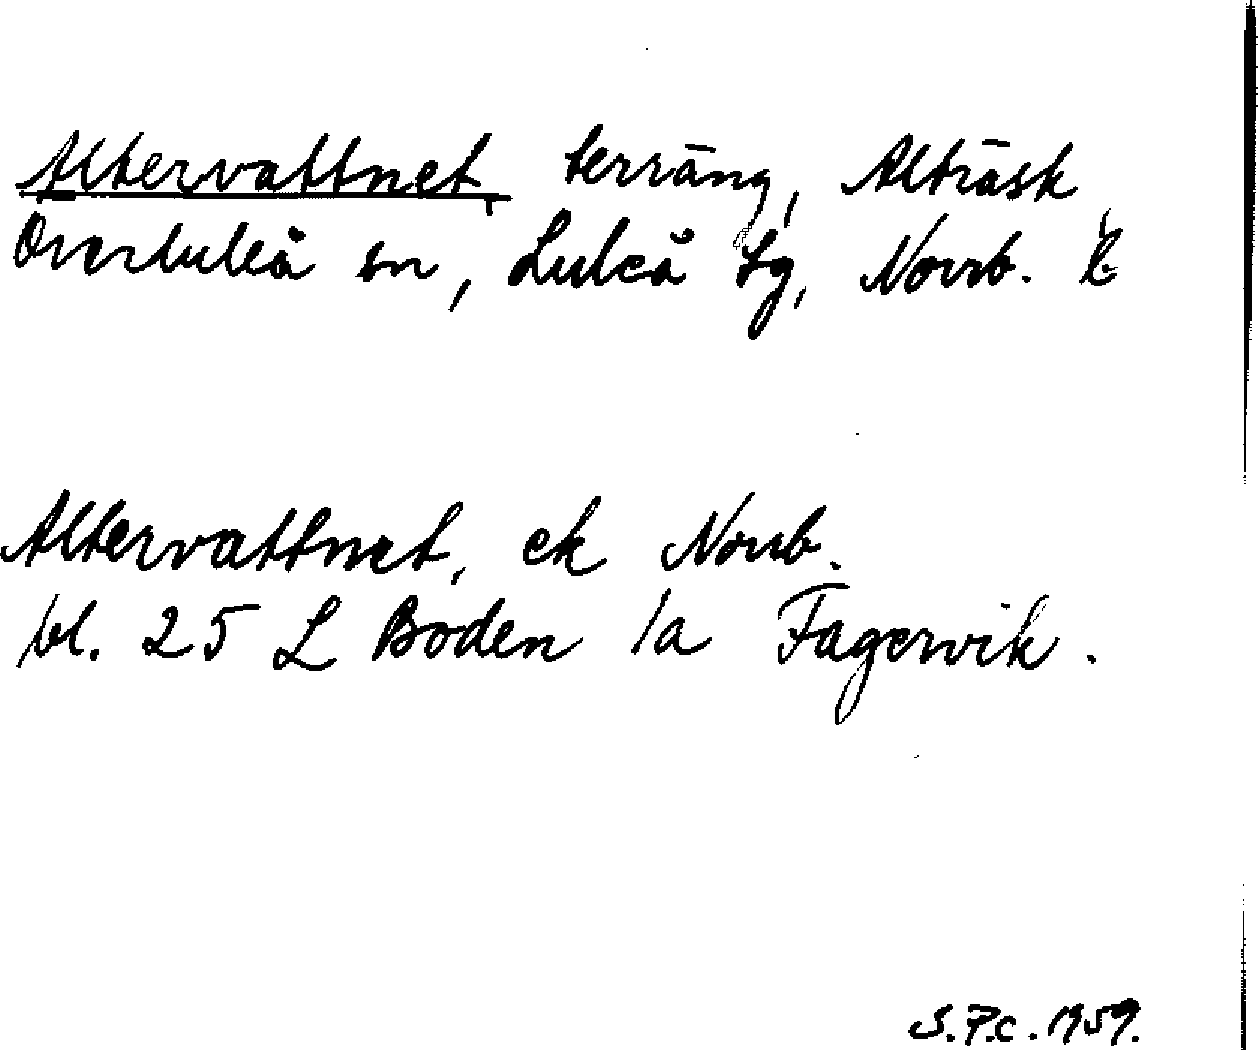 Altervattnet, terräng, Alträsk,
Överluleå sn, Luleå tg, Norrb. l.
Altervattnet, ek Norrb.
bl. 25 L Boden 1a Fagervik.
S.P.C. 1959.